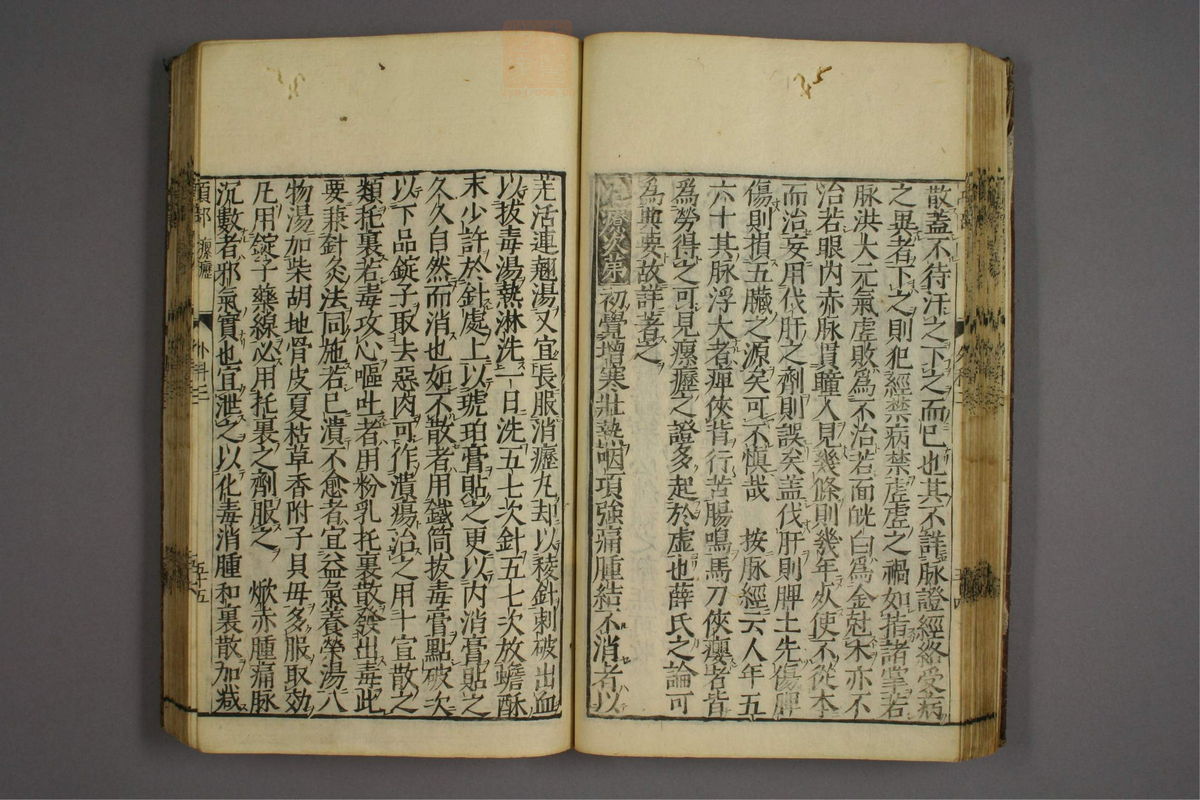 散蓋不待汗之下之而已也其不詳脉證經絡受病
之異者下之則犯經禁病禁虛虛之禍如指諸掌若
脉洪大元氣虛敗爲不治若面㿠白爲金尅木亦不
治若眼內赤脉貫瞳人見幾條則幾年死使不從本
而治妄用伐肝之劑則誤矣蓋伐肝則脾土先傷脾
傷則損五臟之源矣可不慎哉 按脉經云人年五
六十其脉浮大者痺俠背行苦腸鳴馬刀俠癭者皆
爲勞得之可見瘰癧之證多起於虛也薛氏之論可
爲典要故詳著之
療次第 初覺增寒壯熱咽項強痛腫結不消者以
羌活連翹湯又宜長服消癧丸却以稜針刺破出血
以拔毒湯熱淋洗一日洗五七次針五七次放蟾酥
末少許於針處上以琥珀膏貼之更以內消膏貼之
久久自然而消也如不散者用鐵筒拔毒膏點破次
以下品錠子取去惡肉可作潰瘍治之用十宣散之
類托裏若毒攻心嘔吐者用粉乳托裏散發出毒此
要兼針灸法同施若已潰不愈者宜益氣養榮湯八
物湯加柴胡地骨皮夏枯草香附子貝母多服取効
凡用錠子藥線必用托裏之劑服之 焮赤腫痛脉
沉數者邪氣實也宜泄之以化毒消腫和裏散加减
項部 瘰癧 外科三 五十五